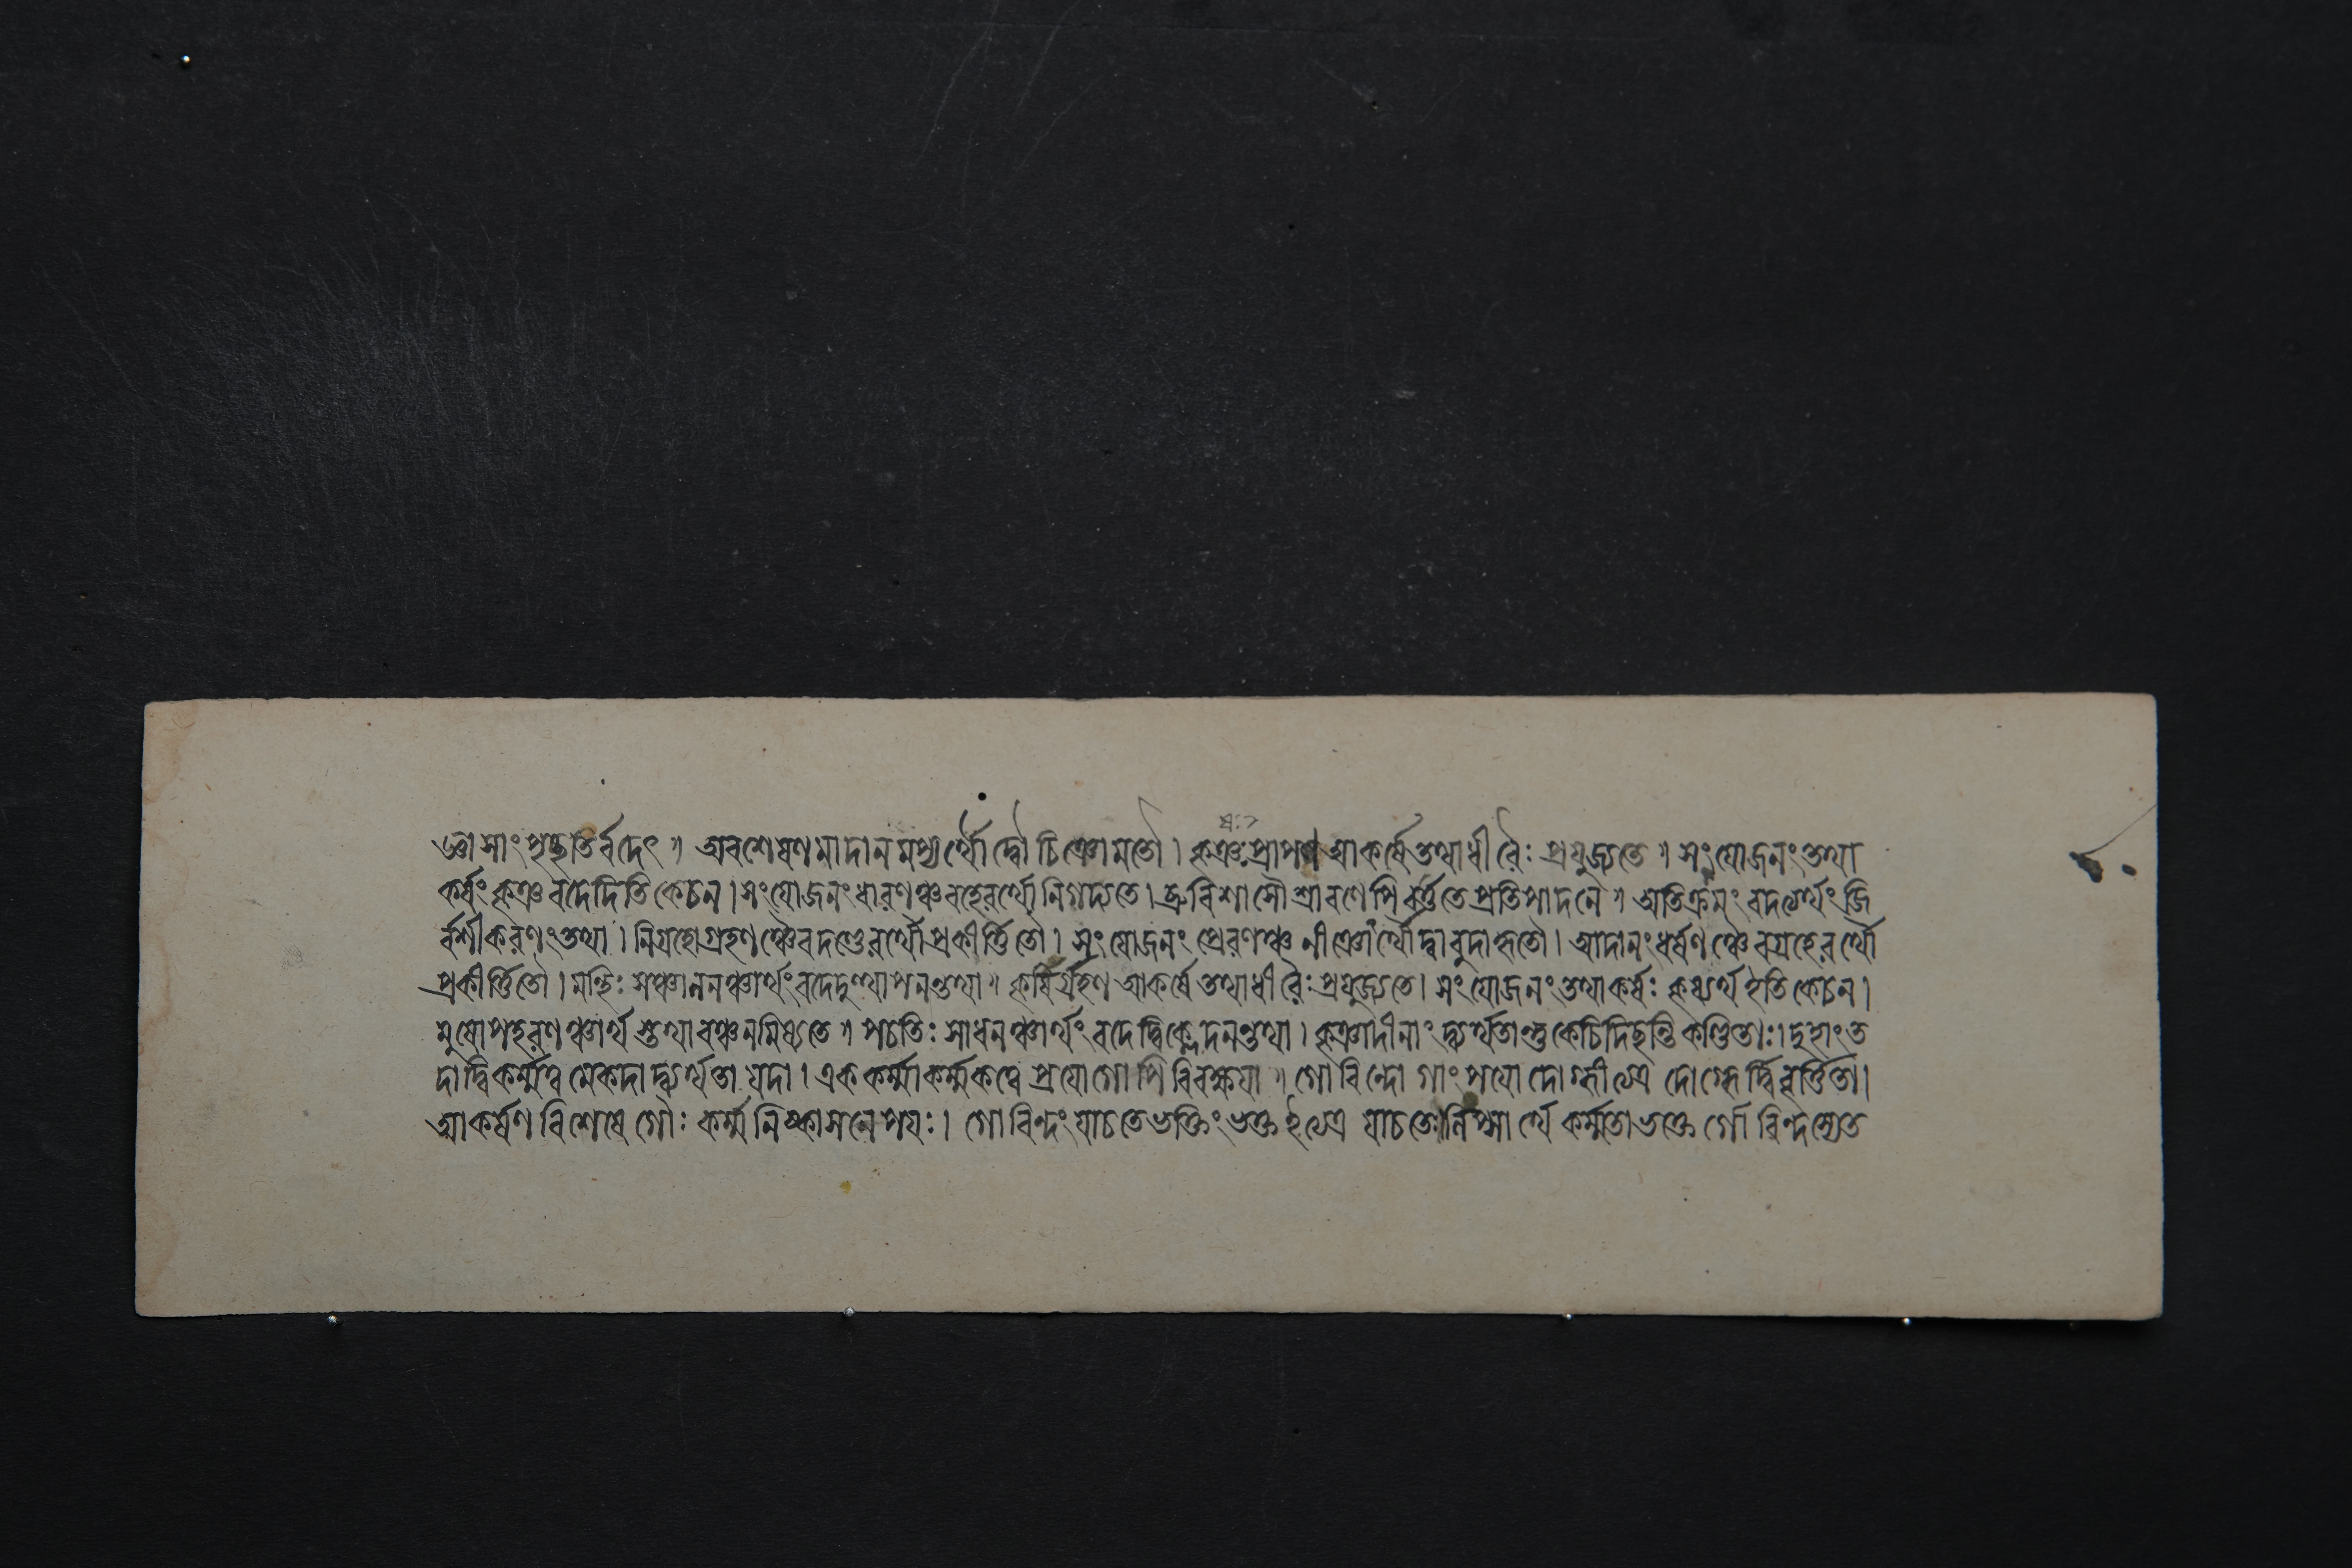 জ্ঞাসাং পৃচ্ছতির্বদেৎ॥ অবশেষণমাদানমপ্যর্থৌ দ্বৌ চিঞো মতৌ। কৃঞঃ প্রাপণ আকর্ষে তথা ধীরৈঃ প্রযুজ্যতে॥ সংযোজনং তথা
কর্ষং কৃঞ বদেদিতি কেচন। সংযোজনং ধারণঞ্চ বহেরর্থো নিগদ্যতে। ব্রুবিশাসৌ শ্রাবণেপি বর্ত্ততে প্রতিপাদনে॥ অতিক্রমং বদত্যর্থং জি
র্বশীকরণং তথা। নিগ্রহো গ্রহণঞ্চৈব দণ্ডেরর্থৌ প্রকীর্ত্তিতৌ। সংযোজনং প্রেরণঞ্চ নীঞোর্থৌ দ্বাবুদাহৃতৌ। আদানং ধর্ষণঞ্চৈব গ্রহেরর্থৌ
প্রকীর্ত্তিতৌ। মন্থিঃ সঞ্চালনঞ্চার্থং বদেদুত্থাপনন্তথা॥ কৃষির্গ্রহণ আকর্ষে তথা ধীরৈঃ প্রযুজ্যতে। সংযোজনং তথাকর্ষঃ কৃষ্যর্থ ইতি কেচন।
মুষোপহরণঞ্চার্থ স্তথা বঞ্চনমিষ্যতে॥ পচতিঃ সাধনঞ্চার্থং বদেদ্বিক্লেদনন্তথা। কৃঞাদীনাং দ্ব্যর্থতান্তু কেচিদিচ্ছন্তি পণ্ডিতাঃ। দুহাং ত
দা দ্বিকর্ম্মত্ব মেকদা দ্ব্যর্থতা যদা। এককর্ম্মাকর্ম্মকত্বে প্রযোগোপি বিবক্ষযা॥ গোবিন্দো গাং পযো দোগ্ধীত্যত্র দোগ্ধের্দ্বিবৃর্ত্তিতা।
আকর্ষণবিশেষে গৌঃ কর্ম্ম নিষ্কাসনে পযঃ। গোবিন্দং যাচতে ভক্তিং ভক্ত ইত্যত্র যাচতেঃ। লিপ্সার্থে কর্ম্মতা ভক্তে র্গোবিন্দস্যেত